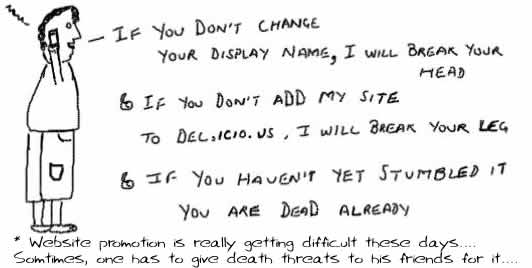 - IF YOU DON'T CHANGE
YOUR DISPLAY NAME, I WILL BREAK YOUR
HEAD
& IF YOU DON'T ADD MY SITE
TO DEL.ICIO.US, I WILL BREAK YOUR LEG
& IF YOU HAVEN'T YET STUMBLED IT
YOU ARE DEAD ALREADY
* Website promotion is really getting difficult these days....
Somtimes, one has to give death threats to his friends for it....